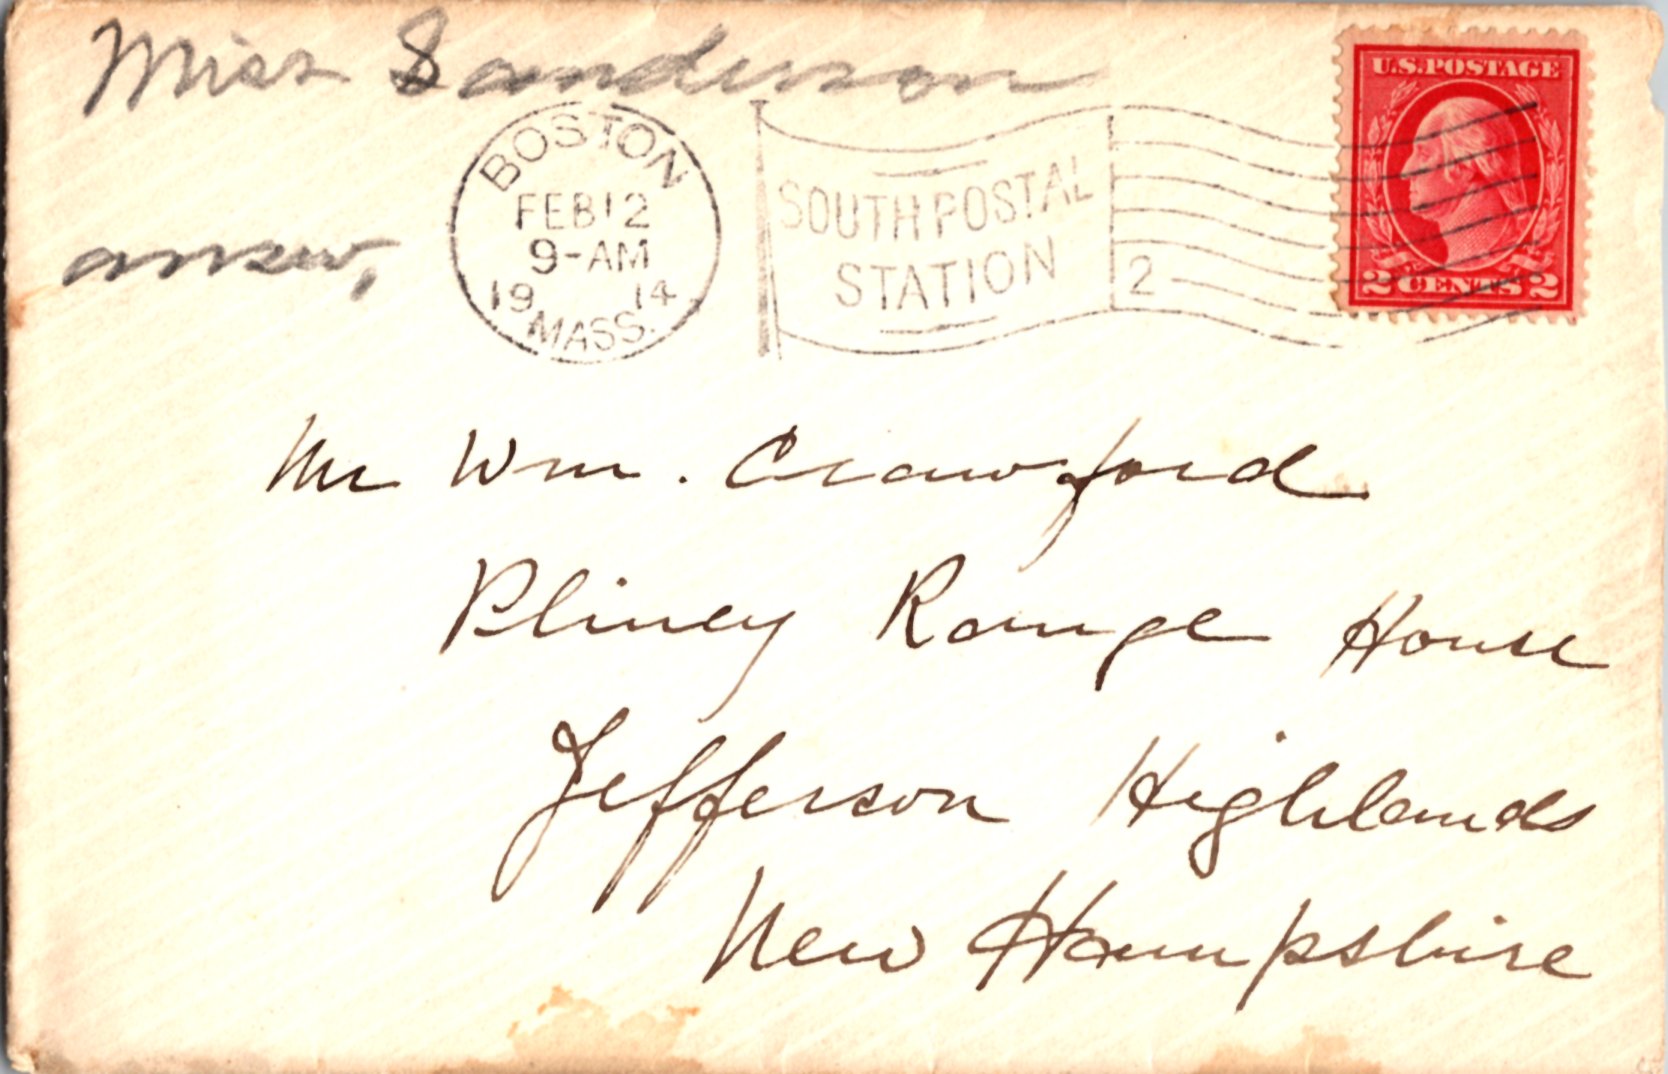 Miss Sanderson
answ,
BOSTON
FEB 12
9-AM
19 14
MASS.
SOUTH POSTAL
STATION
2
U.S. POSTAGE
2 CENTS 2
Mr Wm. Crawford
Pliney Range House
Jefferson Highlands
New Hampshire